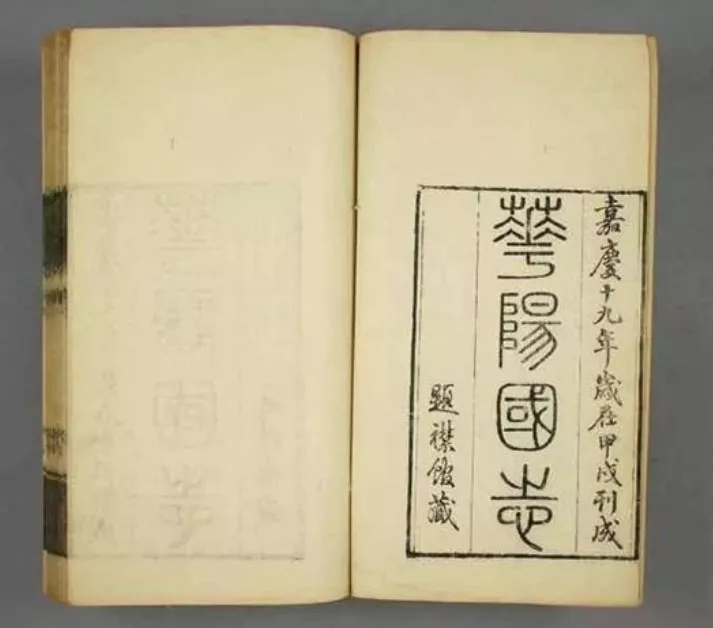 嘉慶十九年歲在甲戌刊成
華陽國志
題襟館藏